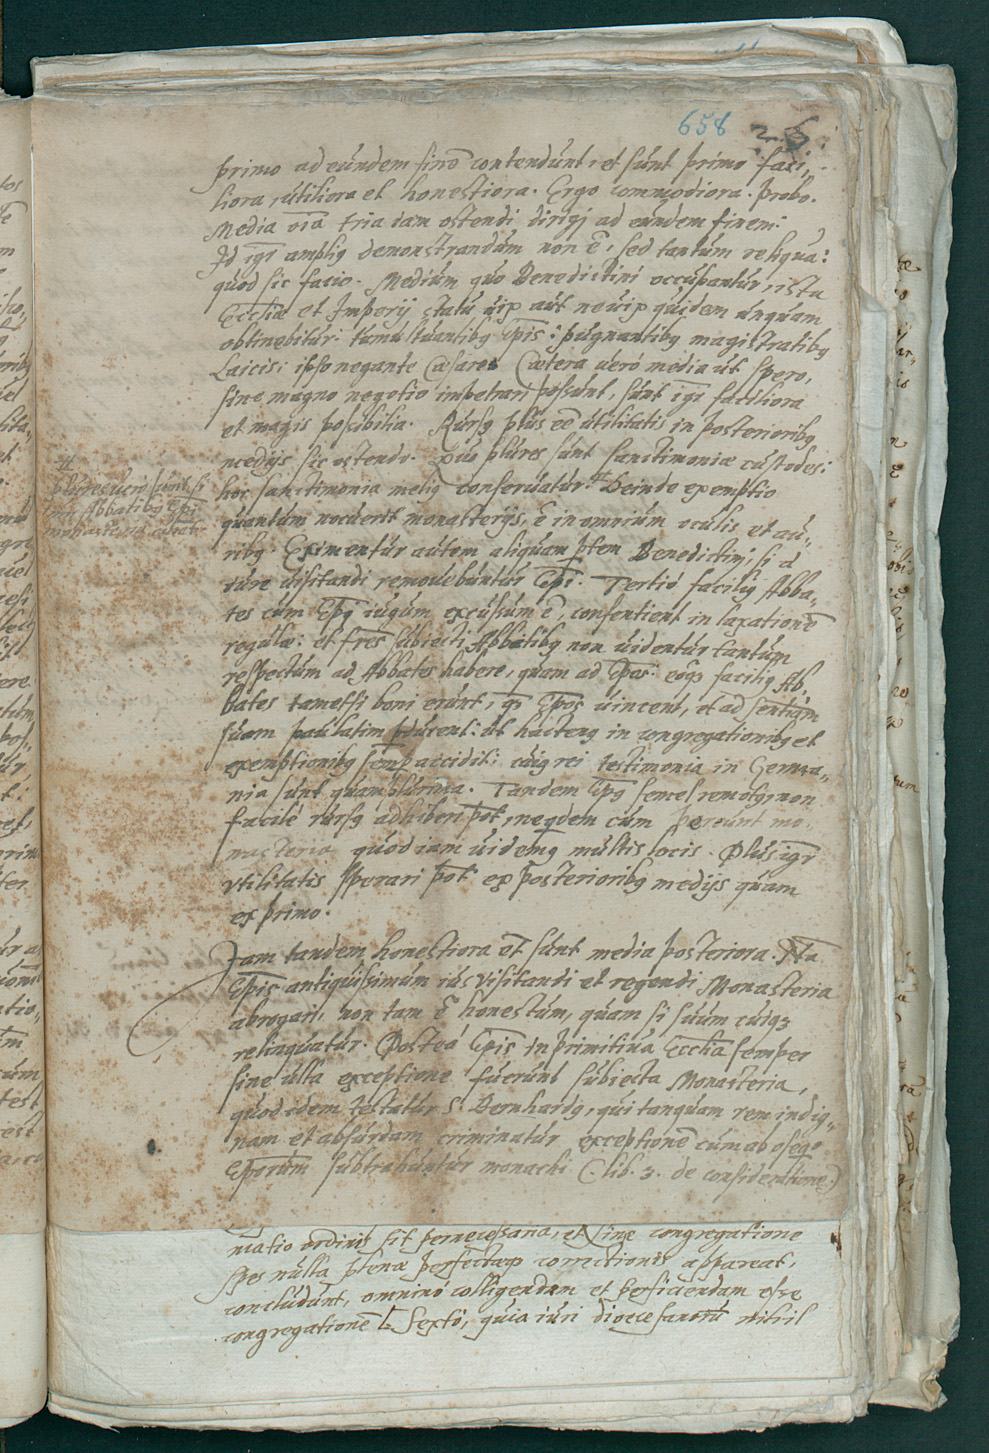 658 26
primo ad eundem finē contendunt, et sunt primo faci,
liora, utiliora et honestiora. Ergo commodiora. Probo.
Media oīa tria iam ostendi dirigj ad eundem finem:
Id igr̄ ampliꝰ demonstrandum non ē, sed tantum reliqua:
quod sic facio. Medium quo Benedictini occupantur, isto
Eccliæ et Imperij statu uix aut neuix quidem unquam
obtinebitur: tumultuantibꝰ Ep̄is: pugnantibꝰ magistratibꝰ
Laicis: ipso negante Cæsare. Cætera verò media ut spero,
sine magno negotio impetrari possunt, sunt igr̄ faciliora
et magis possibilia. Rursꝰ plus eē utilitatis in posterioribꝰ
medijs sic ostendo. Quo plures sunt sanctimoniæ custodes:
hoc sanctimonia meliꝰ conseruatur.# Deinde exemptio
#
plures uero sunt si
cum Abbatibꝰ Ep̄i
monasteria
quantum nocuerit monasterijs, ē in omnium oculis et au,,
ribꝰ. Eximentur autem aliquam ꝑtem Benedictini, si a
iure visitandi remouebuntur Ep̄i. Tertiò faciliꝰ Abba,
tes cum Ep̄ꝰ iugum excussum ē, consentient in laxationē
regulæ: et fr̄es subiecti Abbatibꝰ non uidentur tantum
respectum ad Abbates habere, quam ad Ep̄os: eoqꝫ faciliꝰ Ab,
bates tametsi boni erunt, qꝫ Ep̄os uincent, et ad sententiam
suam paulatim ꝑducent: ut hactenꝰ in congregationibꝰ et
exemptionibꝰ semꝑ accidit: cuiꝰ rei testimonia in Germa,,
nia sunt quamplurima. Tandem Ep̄ꝰ semel remotꝰ, non
facilè rursꝰ adhiberi pōt, neqdem cum pereunt mo,
nasteria quod iam uidemꝰ multis locis. Plus igr̄
vtilitatis sperari pōt ex posterioribꝰ medijs quam
ex primo.
Jam tandem honestiora et sunt media posteriora. Na
Ep̄is antiquissimum ius visitandi et regendi Monasteria
abrogari, non tam ē honestum, quam si suum cuiqꝫ
relinquatur. Posteà Ep̄is in primitiua Ecclia semper
sine ulla exceptione fuerunt subiecta Monasteria,
quod idem testatur S. Bernhardꝰ, qui tanquam rem indig,,
nam et absurdam criminatur exceptionē cum ab oseqo
Ep̄orum subtrahuntur monachi (lib. 3. de consideratione.)
matio ordinis sit pernecessaria, et sine congregatione
spes nulla plenæ perfectæqꝫ correctionis appareat,
concludunt, omninò colligendam et perficiendam esse
congregationē. Sextò, quia iuri dioecesanorū nihil